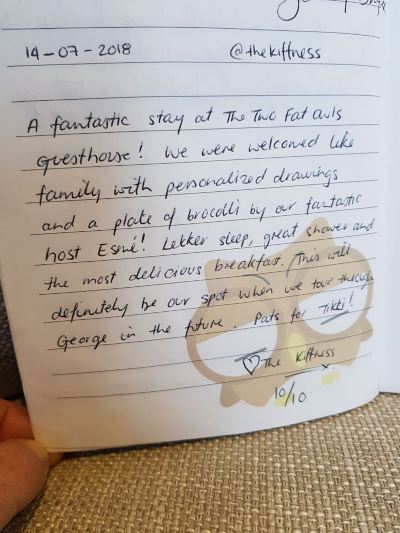 14-07-2018 @thekiffness
A fantastic stay at The Two Fat owls
guesthouse! We were welcomed like
family with personalized drawings
and a plate of brocolli by our fantastic
host Esmé! Lekker sleep, great shower and
the most delicious breakfast. This will
definitely be our spot when we tour through
George in the future. Pats for Tikki!
♡ The Kiffness x.
10/10